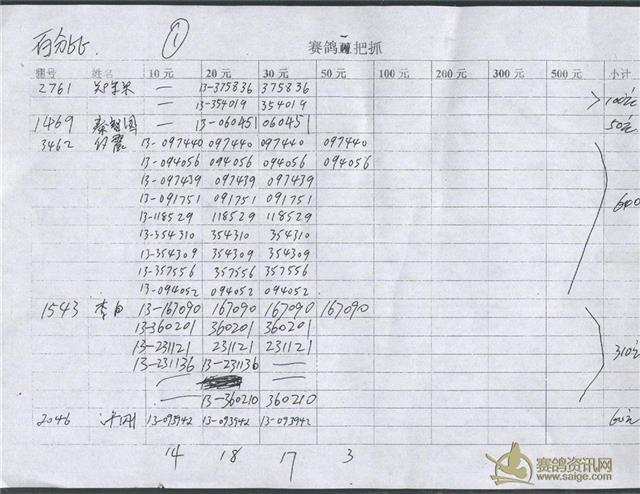 百分比 ①
赛鸽 把抓
棚号 姓名 10 元 20 元 30 元 50 元 100 元 200 元 300 元 500 元 小计
2761 — 13-375836 375836
— 13-354019 354019 100元
1469 — 13-060451 060451 50元
3462 13-097440 097440 097440 097440
13-094056 094056 094056 094056
13-097439 097439 097439
13-091751 091751 091751
13-118529 118529 118529
13-354310 354310 354310
13-354309 354309 354309
13-357556 357556 357556
13-094052 094052 094052
1543 李白 13-167090 167090 167090 167090
13-360201 360201 360201
13-231121 231121 231121 310元
13-231136 13-231136 —
— —
13-360210 360210
2046 13-093942 13-093942 13-093942 60元
14 18 17 3
赛鸽资讯网
www.saige.com